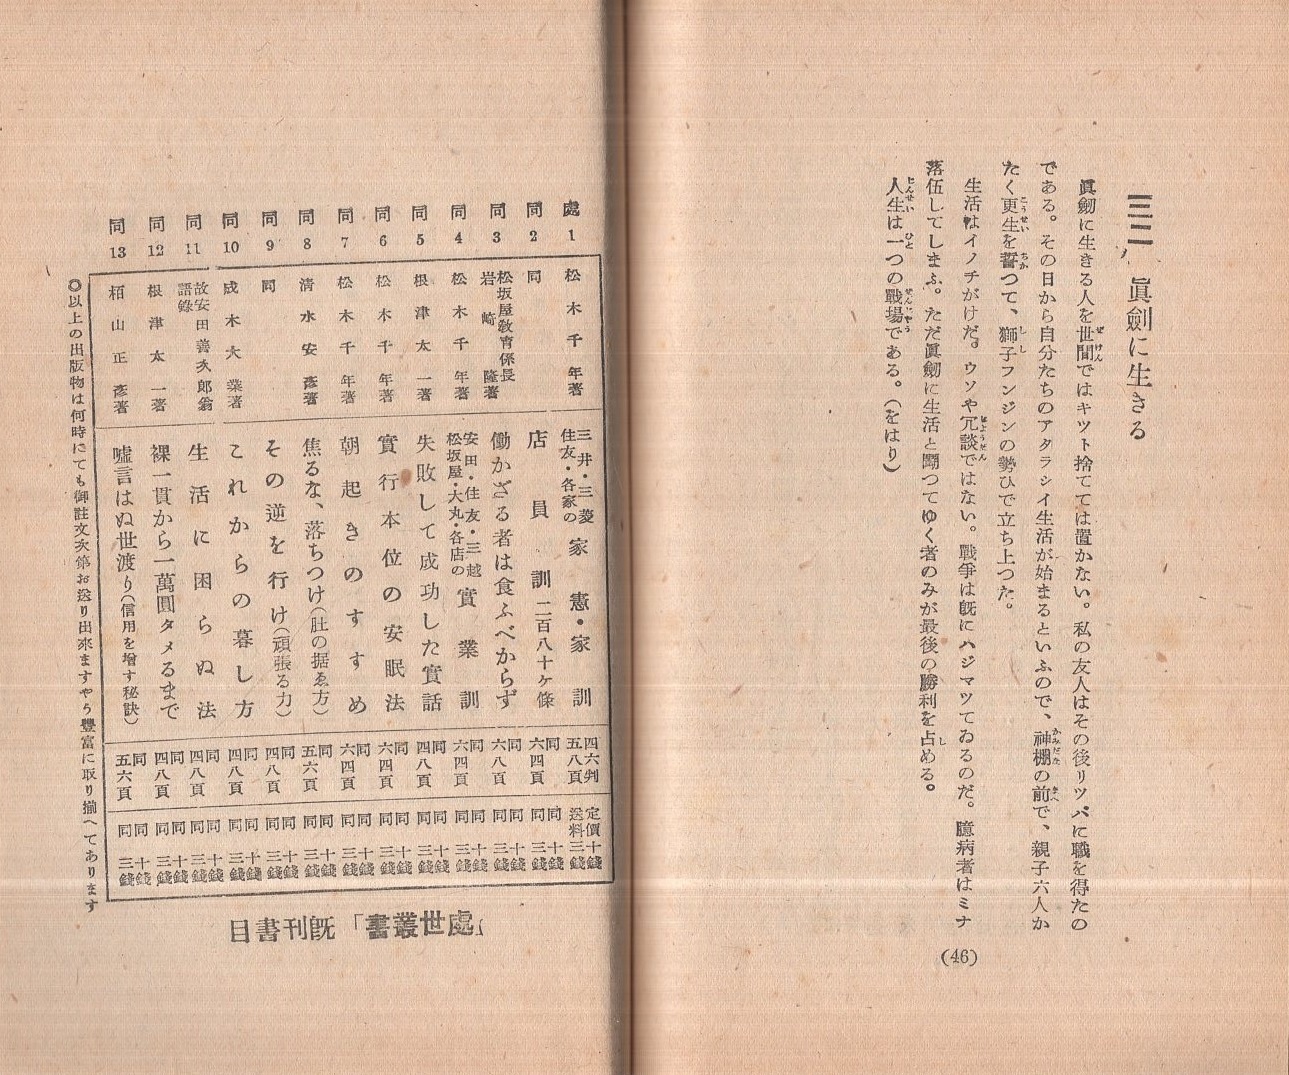 三二、眞劍に生きる
眞劒に生きる人を世間ではキツト捨てては置かない。私の友人はその後リツパに職を得たの
である。その日から自分たちのアタラシイ生活が始まるといふので、神棚の前で、親子六人か
たく更生を誓つて、獅子フンジンの勢ひで立ち上つた。
生活はイノチがけだ。ウソや冗談ではない。戰爭は旣にハジマツてゐるのだ。臆病者はミナ
落伍してしまふ。ただ眞劒に生活と鬪つてゆく者のみが最後の勝利を占める。
人生は一つの戰場である。(をはり)
(46)
「處世叢書」旣刊書目
處1 松木千年著 三井・三菱住友・各家の 家憲・家訓 四六判五八頁 定價十錢送料三錢
同2 同 店員訓二百八十ケ條 同六四頁 同十錢同三錢
同3 松坂屋敎育係長岩崎隆著 働かざる者は食ふべからず 同六八頁 同十錢同三錢
同4 松木千年著 安田・住友・三越松坂屋・大丸・各店の 實業訓 同六四頁 同十錢同三錢
同5 根津太一著 失敗して成功した實話 同四八頁 同十錢同三錢
同6 松木千年著 實行本位の安眠法 同六四頁 同十錢同三錢
同7 松木千年著 朝起きのすすめ 同六四頁 同十錢同三錢
同8 清水安彥著 焦るな、落ちつけ(肚の据ゑ方) 同五六頁 同十錢同三錢
同9 同 その逆を行け(頑張る力) 同四八頁 同十錢同三錢
同10 成木大業著 これからの暮し方 同四八頁 同十錢同三錢
同11 故安田善次郎翁語錄 生活に困らぬ法 同四八頁 同十錢同三錢
同12 根津太一著 裸一貫から一萬圓タメるまで 同四八頁 同十錢同三錢
同13 栢山正彥著 嘘言はぬ世渡り(信用を增す秘訣) 同五六頁 同十錢同三錢
◎以上の出版物は何時にても御註文次第お送り出來ますやう豐富に取り揃へてあります